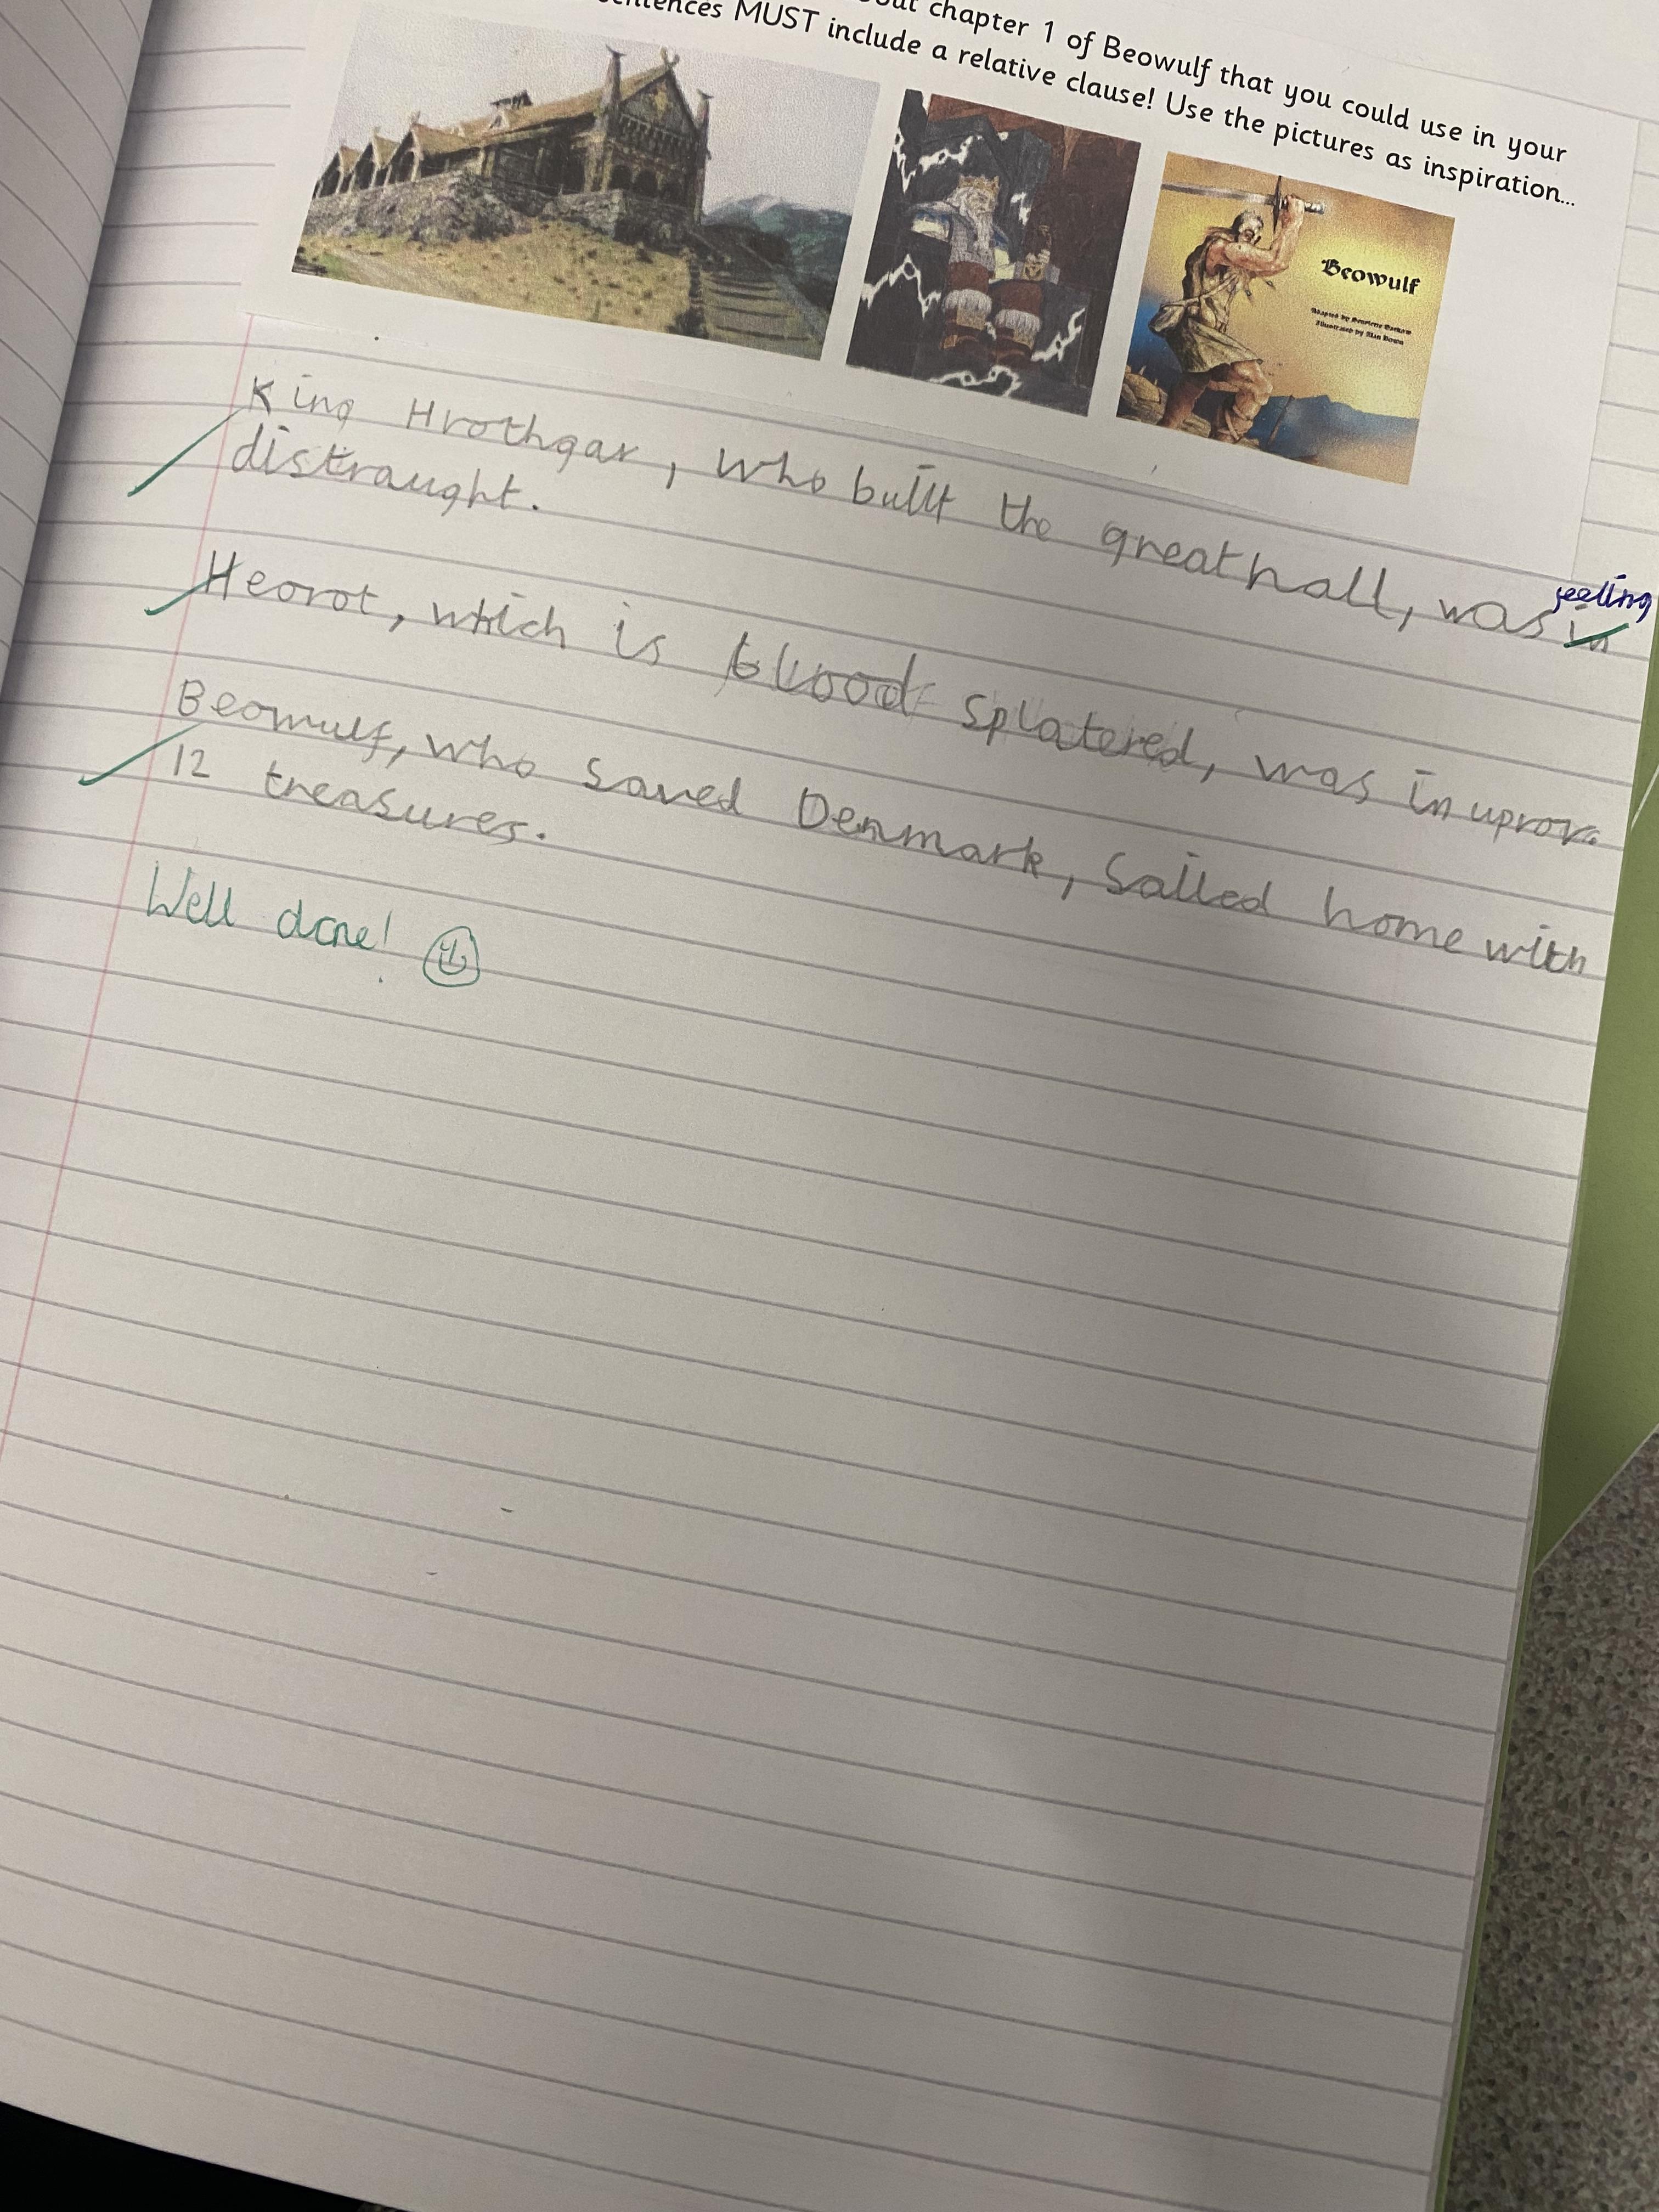 out chapter 1 of Beowulf that you could use in your
sentences MUST include a relative clause! Use the pictures as inspiration...
Beowulf
Adapted by Henriette Barkow
Illustrated by Alan Down
King Hrothgar, who built the great hall, was in
feeling
distraught.
Heorot, which is blood splatered, was in upror.
Beowulf, who saved Denmark, sailed home with
12 treasures.
Well done!